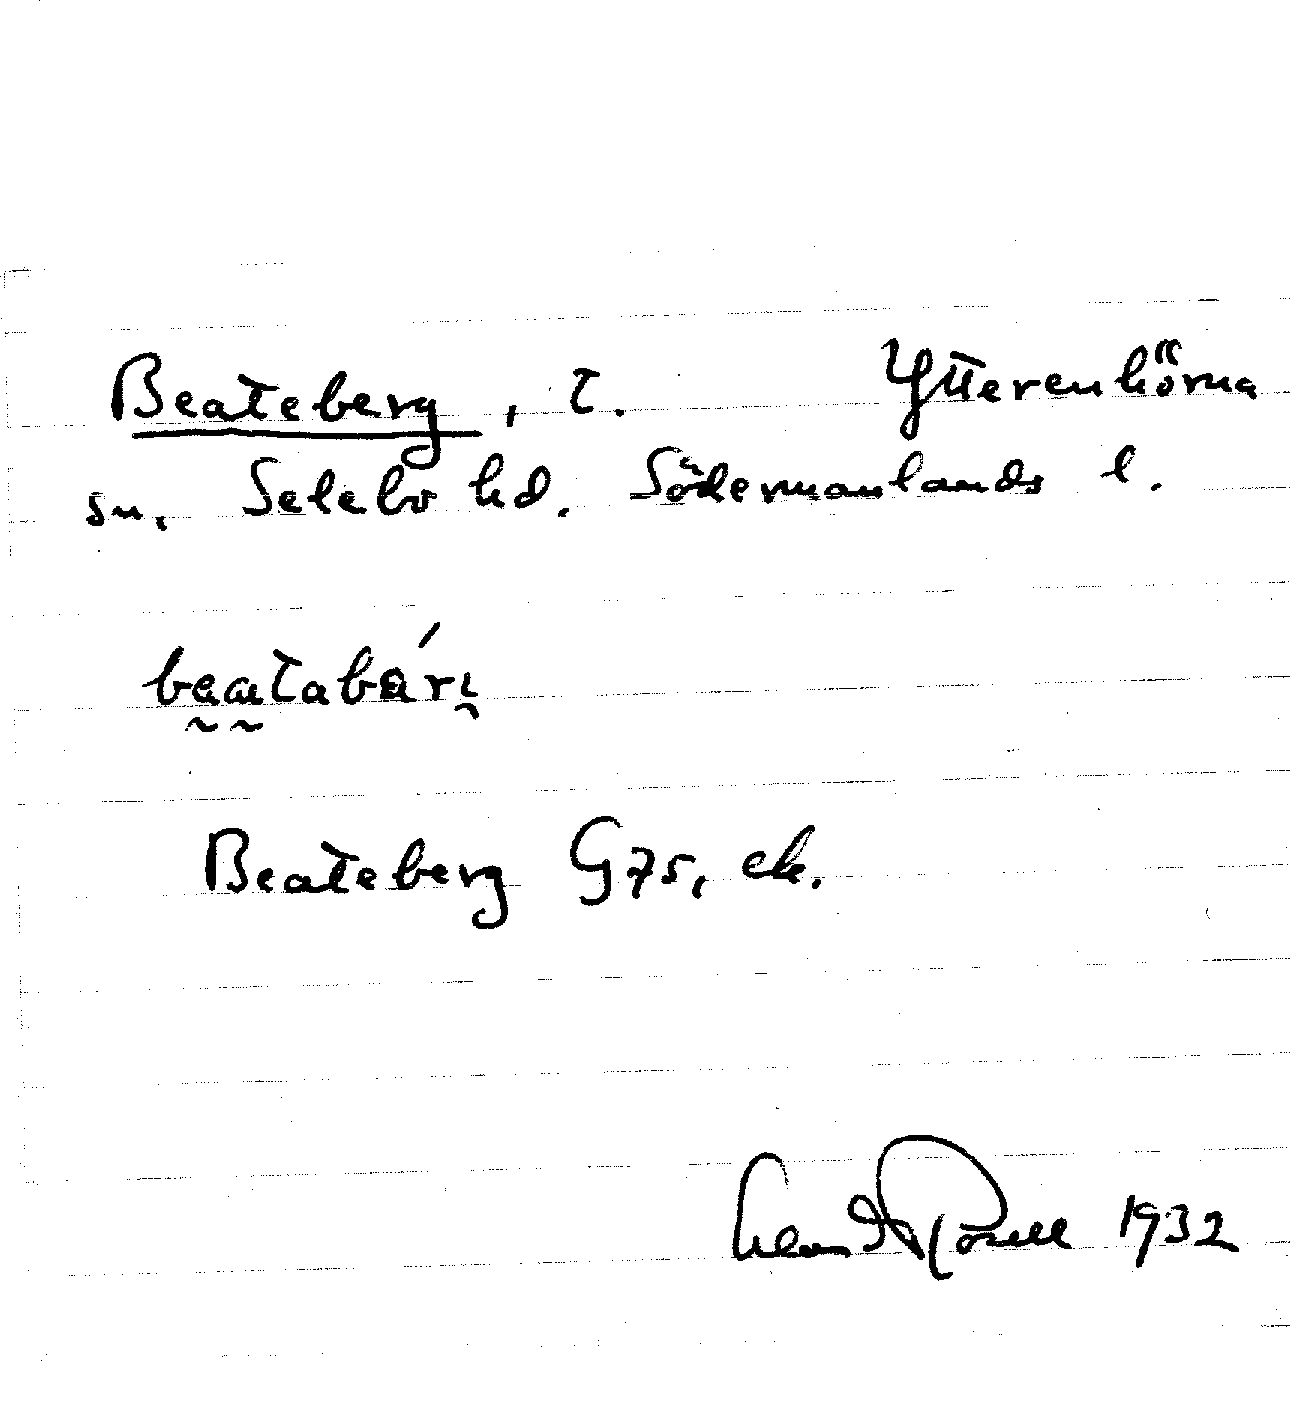 Beateberg, t. Ytterenhörna
sn. Selebo hd. Södermanlands l.
beatabári
Beateberg G75, ek.
1932